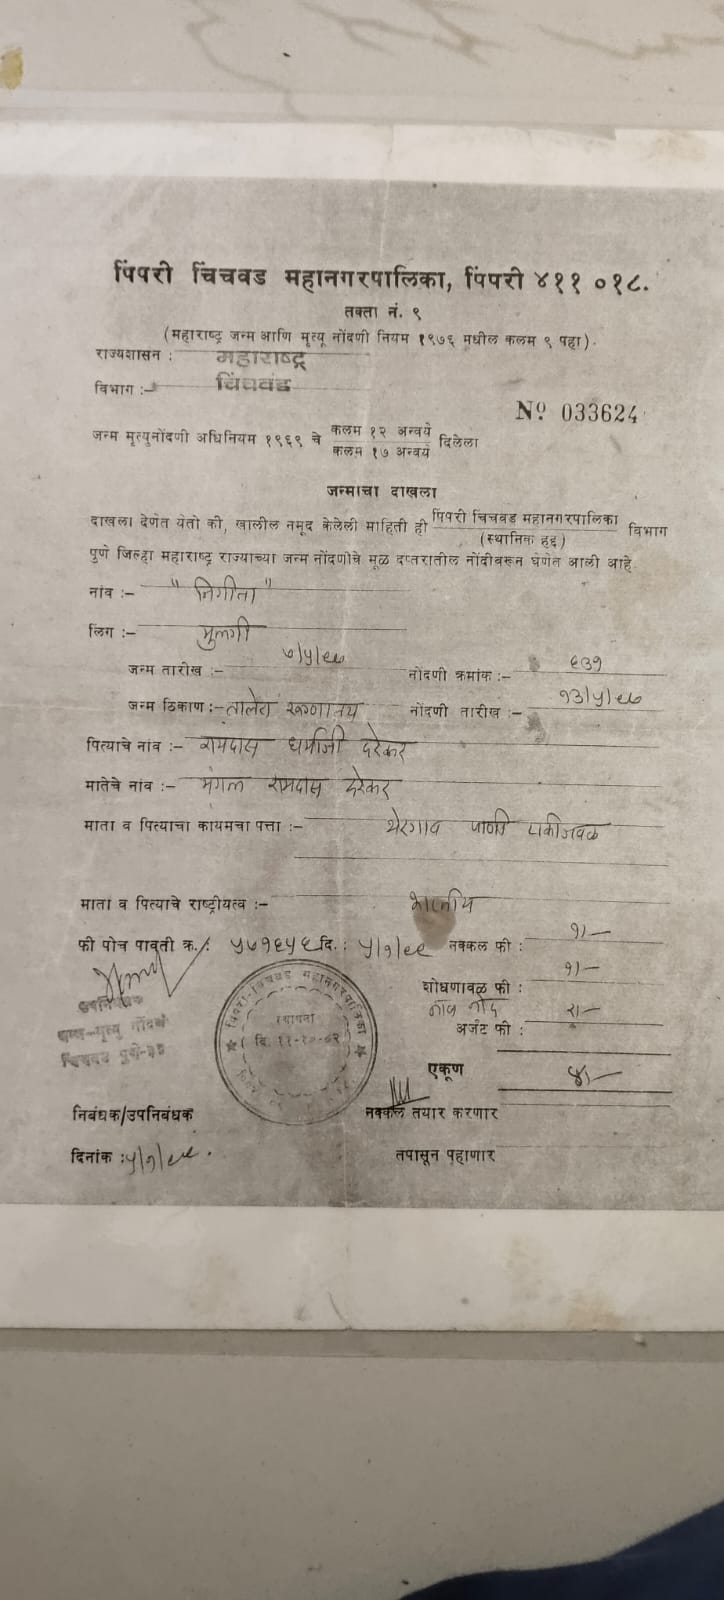 पिंपरी चिंचवड महानगरपालिका, पिंपरी ४११ ०१८.
तक्ता नं. ९
(महाराष्ट्र जन्म आणि मृत्यू नोंदणी नियम १९७६ मधील कलम ९ पहा)
राज्यशासन : महाराष्ट्र
विभाग :- चिंचवड
Nº 033624
जन्म मृत्युनोंदणी अधिनियम १९६९ चे कलम १२ अन्वये / कलम १७ अन्वये दिलेला
जन्माचा दाखला
दाखला देणेत येतो की, खालील नमूद केलेली माहिती ही पिंपरी चिंचवड महानगरपालिका (स्थानिक हद्द) विभाग
पुणे जिल्हा महाराष्ट्र राज्याच्या जन्म नोंदणीचे मूळ दप्तरातील नोंदीवरून घेणेत आली आहे.
नांव :-
लिंग :- मुलगी
जन्म तारीख :- नोंदणी क्रमांक :- ६३१
जन्म ठिकाण :- तालेरा रूग्णालय नोंदणी तारीख :-
पित्याचे नांव :- रामदास धर्माजी दरेकर
मातेचे नांव :- मंगल रामदास दरेकर
माता व पित्याचा कायमचा पत्ता :- थेरगाव पाणी टाकीजवळ
माता व पित्याचे राष्ट्रीयत्व :- भारतीय
फी पोच पावती क्र. : ५७१६५६ दि. : ५/१/८८ नक्कल फी : १/-
शोधणावळ फी : १/-
नांव नोंद २/-
अर्जंट फी :
एकूण ४/-
उपनिबंधक
जन्म-मृत्यु नोंदणी
चिंचवड पुणे-३३
पिंपरी-चिंचवड महानगरपालिका
स्थापना
निबंधक/उपनिबंधक नक्कल तयार करणार
दिनांक : ५/१/८८. तपासून पहाणार